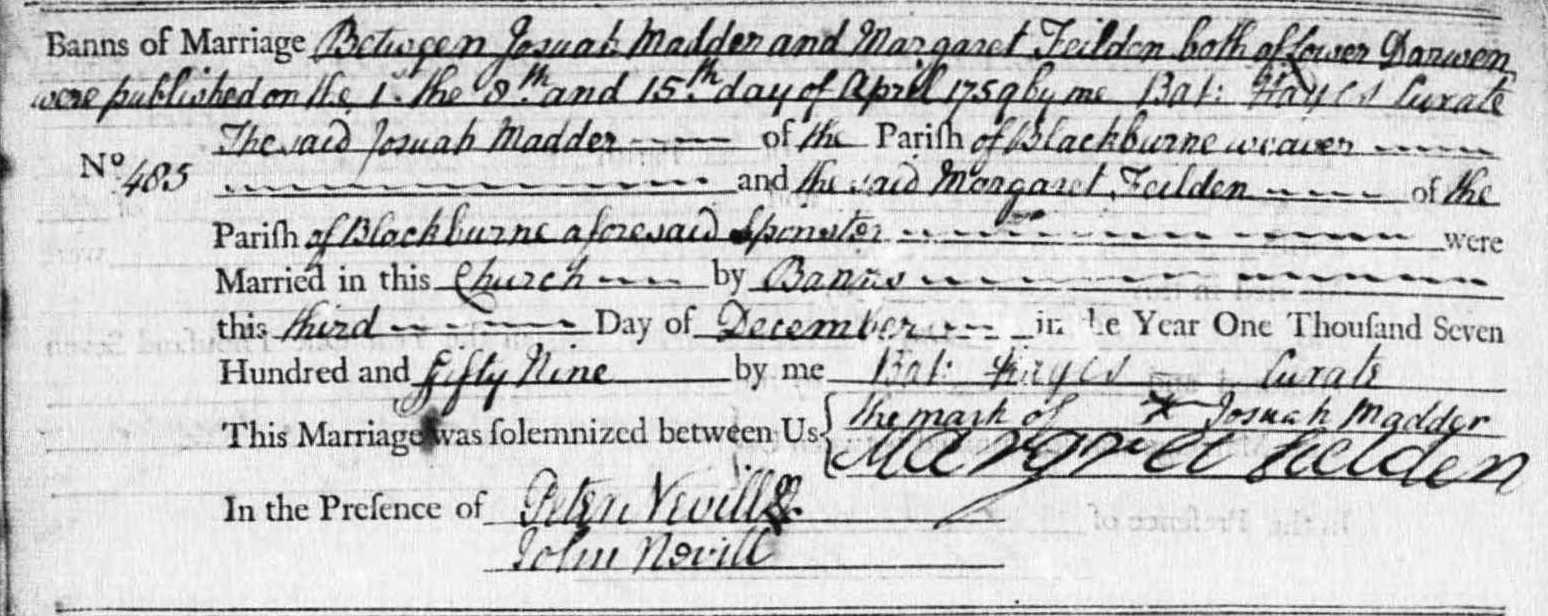 Banns of Marriage Between Josuah Madder and Margaret Feilden both of Lower Darwen
were published on the 1st the 8th and 15th day of April 1759 by me Bat: Hayes Curate
The said Josuah Madder of the Pariſh of Blackburne weaver
No. 485 and the said Margaret Feilden of the
Pariſh of Blackburne aforesaid Spinster were
Married in this Church by Banns
this third Day of December in the Year One Thouſand Seven
Hundred and fifty Nine by me Bat: Hayes Curate
This Marriage was ſolemnized between Us the mark of X Josuah Madder
Margret Feilden
In the Preſence of Peter Nevill
John Nevill